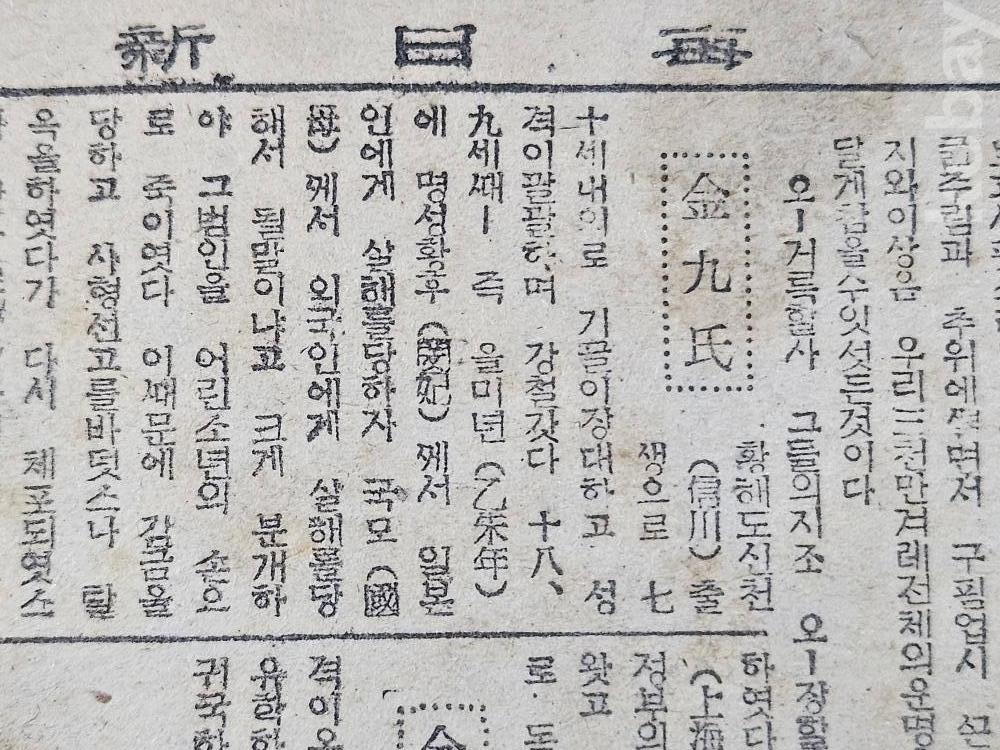 每日新
주림과 추위에떨면서 구핌업시
지와이상은 우리三천만겨레전체의운명
달게감을수잇섯든것이다
오ー거룩할사 그들의지조 오ー장할
金九氏
황해도신천
(信川)출
생으로 七
十세내외로 기골이장대하고 성
격이말말하며 강철갓다 十八、
九세때ー 즉 을미년(乙未年)
에 명성황후(閔妃)께서 일본
인에게 살해를당하자 국모(國
母)께서 외국인에게 살해를당
해서 될말이냐고 크게 분개하
야 그범인을 어린소년의 손으
로 죽이엿다 이때문에 감옥을
당하고 사형선고를바덧스나 탈
옥을하엿다가 다시 체포되엿소
하엿다
(上海
정부의
왓고
로 도
金
격이
ebay